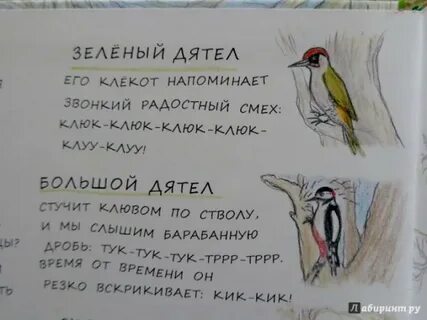 ЗЕЛЁНЫЙ ДЯТЕЛ
ЕГО КЛЁКОТ НАПОМИНАЕТ
ЗВОНКИЙ РАДОСТНЫЙ СМЕХ:
КЛЮК-КЛЮК-КЛЮК-КЛЮК-
КЛУУ-КЛУУ!
БОЛЬШОЙ ДЯТЕЛ
СТУЧИТ КЛЮВОМ ПО СТВОЛУ,
И МЫ СЛЫШИМ БАРАБАННУЮ
ДРОБЬ: ТУК-ТУК-ТУК-ТРРР-ТРРР.
ВРЕМЯ ОТ ВРЕМЕНИ ОН
РЕЗКО ВСКРИКИВАЕТ: КИК-КИК!
Лабиринт.ру